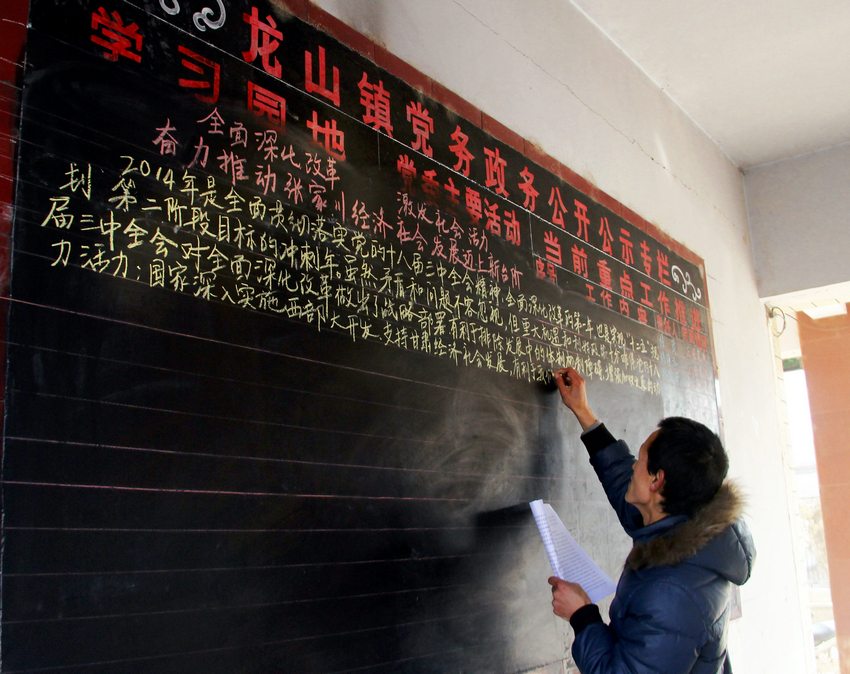 龙山镇党务政务公开公示专栏
学习园地
党委主要活动
当前重点工作推进
序号 工作内容
全面深化改革 激发社会活力
奋力推动张家川经济社会发展迈上新台阶
2014年是全面贯彻落实党的十八届三中全会精神,全面深化改革的第一年,也是实施"十二五"规
划第二阶段目标的冲刺年,虽然矛盾和问题不容忽视,但更大机遇和
届三中全会对全面深化改革做出了战略部署,有利于排除发展中的体制机制障碍,增强
力活力;国家深入实施西部大开发,支持甘肃经济社会发展,有利于我